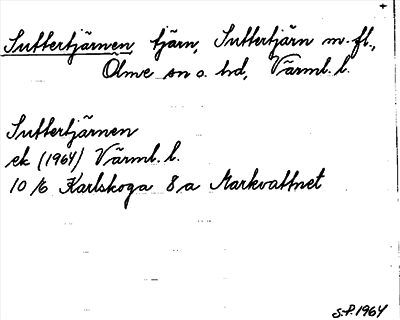 +
Suttertjärnen, tjärn, Suttertjärn m. fl.,
Ölme sn o. hd, Värml. l.
Suttertjärnen
ek (1964) Värml. l.
10/6 Karlskoga 8 a Markvattnet
S.P. 1964